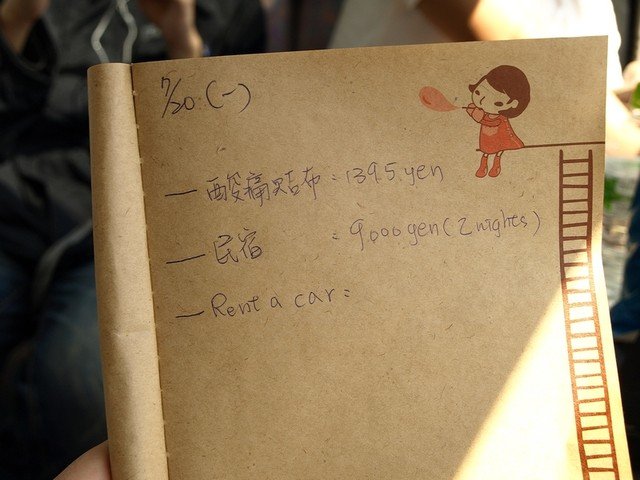 7/20 (一)
— 酸痛貼布 : 1395 yen
— 民宿 : 9,000 yen (2 nights)
— Rent a car :